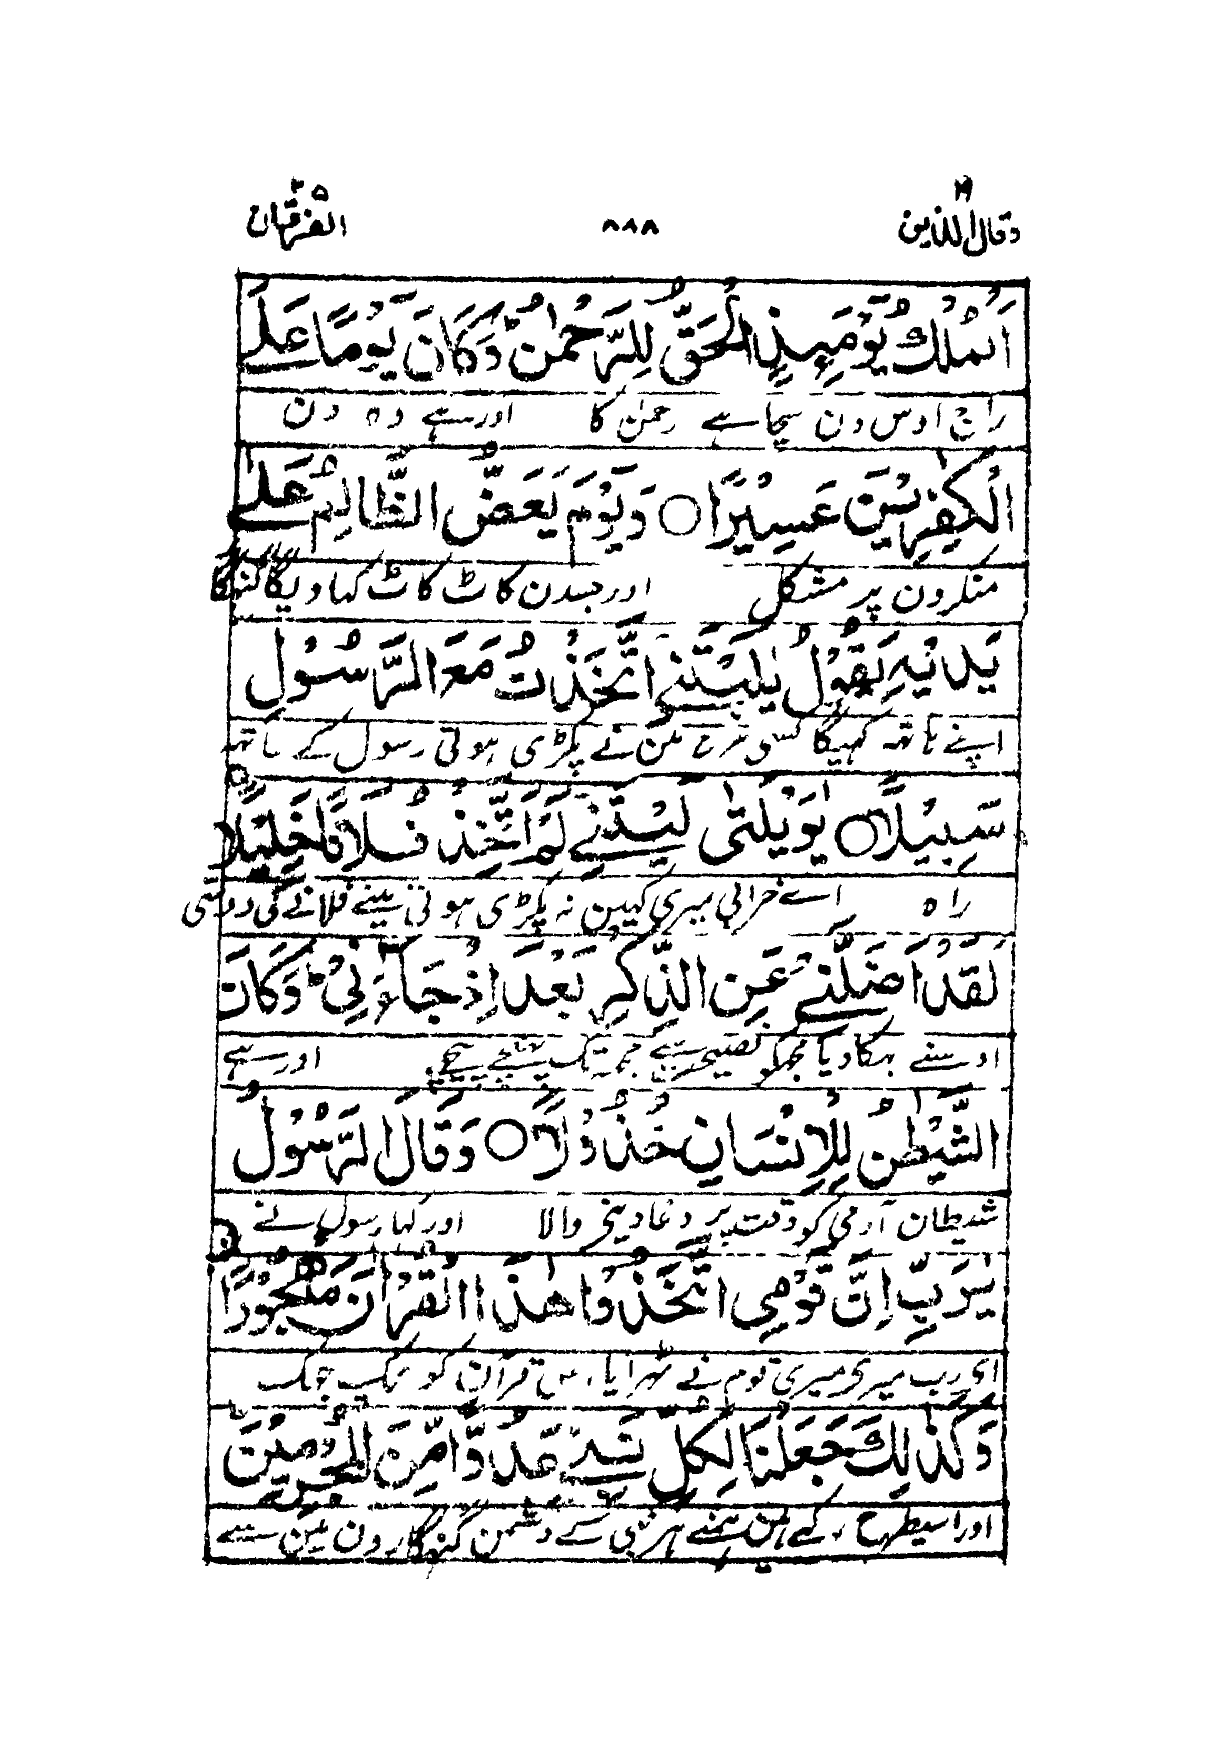 وقال الذين ١٩ ٨٨٨ الفرقان ٢٥
اَلْمُلْكُ يَوْمَئِذِ ِۨالْحَقُّ لِلرَّحْمٰنِ ؕ وَكَانَ يَوْمًا عَلَى
راج اوس دن سچا ہے رحمٰن کا اور ہے وہ دن
الْكٰفِرِيْنَ عَسِيْرًا ○ وَيَوْمَ يَعَضُّ الظَّالِمُ عَلٰى
منکرون پر مشکل اور جسدن کاٹ کاٹ کہاویگا گنہگار
يَدَيْهِ يَقُوْلُ يٰلَيْتَنِى اتَّخَذْتُ مَعَ الرَّسُوْلِ
اپنے ہاتھ کہیگا کسی طرح مین نے پکڑی ہوتی رسول کے ساتھ
سَبِيْلًا ○ يٰوَيْلَتٰى لَيْتَنِىْ لَمْ اَتَّخِذْ فُلَانًا خَلِيْلًا
راہ اے خرابی میری کہین نہ پکڑی ہوتی مینے فلانے کی دوستی
لَقَدْ اَضَلَّنِىْ عَنِ الذِّكْرِ بَعْدَ اِذْ جَآءَنِىْ ؕ وَكَانَ
اوسنے بہکادیا مجھکو نصیحت سے مجھ تک پہنچے پیچھے اور ہے
الشَّيْطٰنُ لِلْاِنْسَانِ خَذُوْلًا ○ وَقَالَ الرَّسُوْلُ
شیطان آدمی کو وقت پر دغا دینے والا اور کہا رسول نے
يٰرَبِّ اِنَّ قَوْمِى اتَّخَذُوْا هٰذَا الْقُرْاٰنَ مَهْجُوْرًا
ای رب میری میری قوم نے ٹھہرایا اس قرآن کو جھک جھک
وَكَذٰلِكَ جَعَلْنَا لِكُلِّ نَبِىٍّ عَدُوًّا مِّنَ الْمُجْرِمِيْنَ
اور اسیطرح رکھے ہین ہمنے ہر نبی کے دشمن گنہگارون مین سے